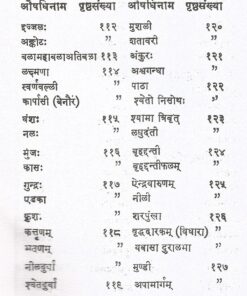 औषधिनाम पृष्ठसंख्या औषधिनाम पृष्ठसंख्या
इज्जलः ११२ मुशली १२०
अङ्कोटः " शतावरी "
बलामहाबलाअतिबला ११३ अंकुरः १२१
लक्ष्मणा ११४ अश्वगन्धा "
स्वर्णवल्ली " पाठा १२२
कार्पासी (बेनौर) " श्वेतो निसोथः "
वंशः ११५ श्यामा त्रिवृत् १२३
नलः " लघुदन्ती "
मुंजः ११६ बृहद्दन्ती १२४
कासः " बृहद्दन्तीफलम् "
गुन्द्रः ११७ ऐन्द्रवारुणम् १२५
एडका " नीली "
कुशः " शरपुंखा १२६
कत्तृणम् ११८ वृद्धदारकम् (विधारा) "
भूतृणम् " यवासा दुरालभा "
नीलदूर्वा " मुण्डी १२७
श्वेतदूर्वा ११९ अपामार्गम् "